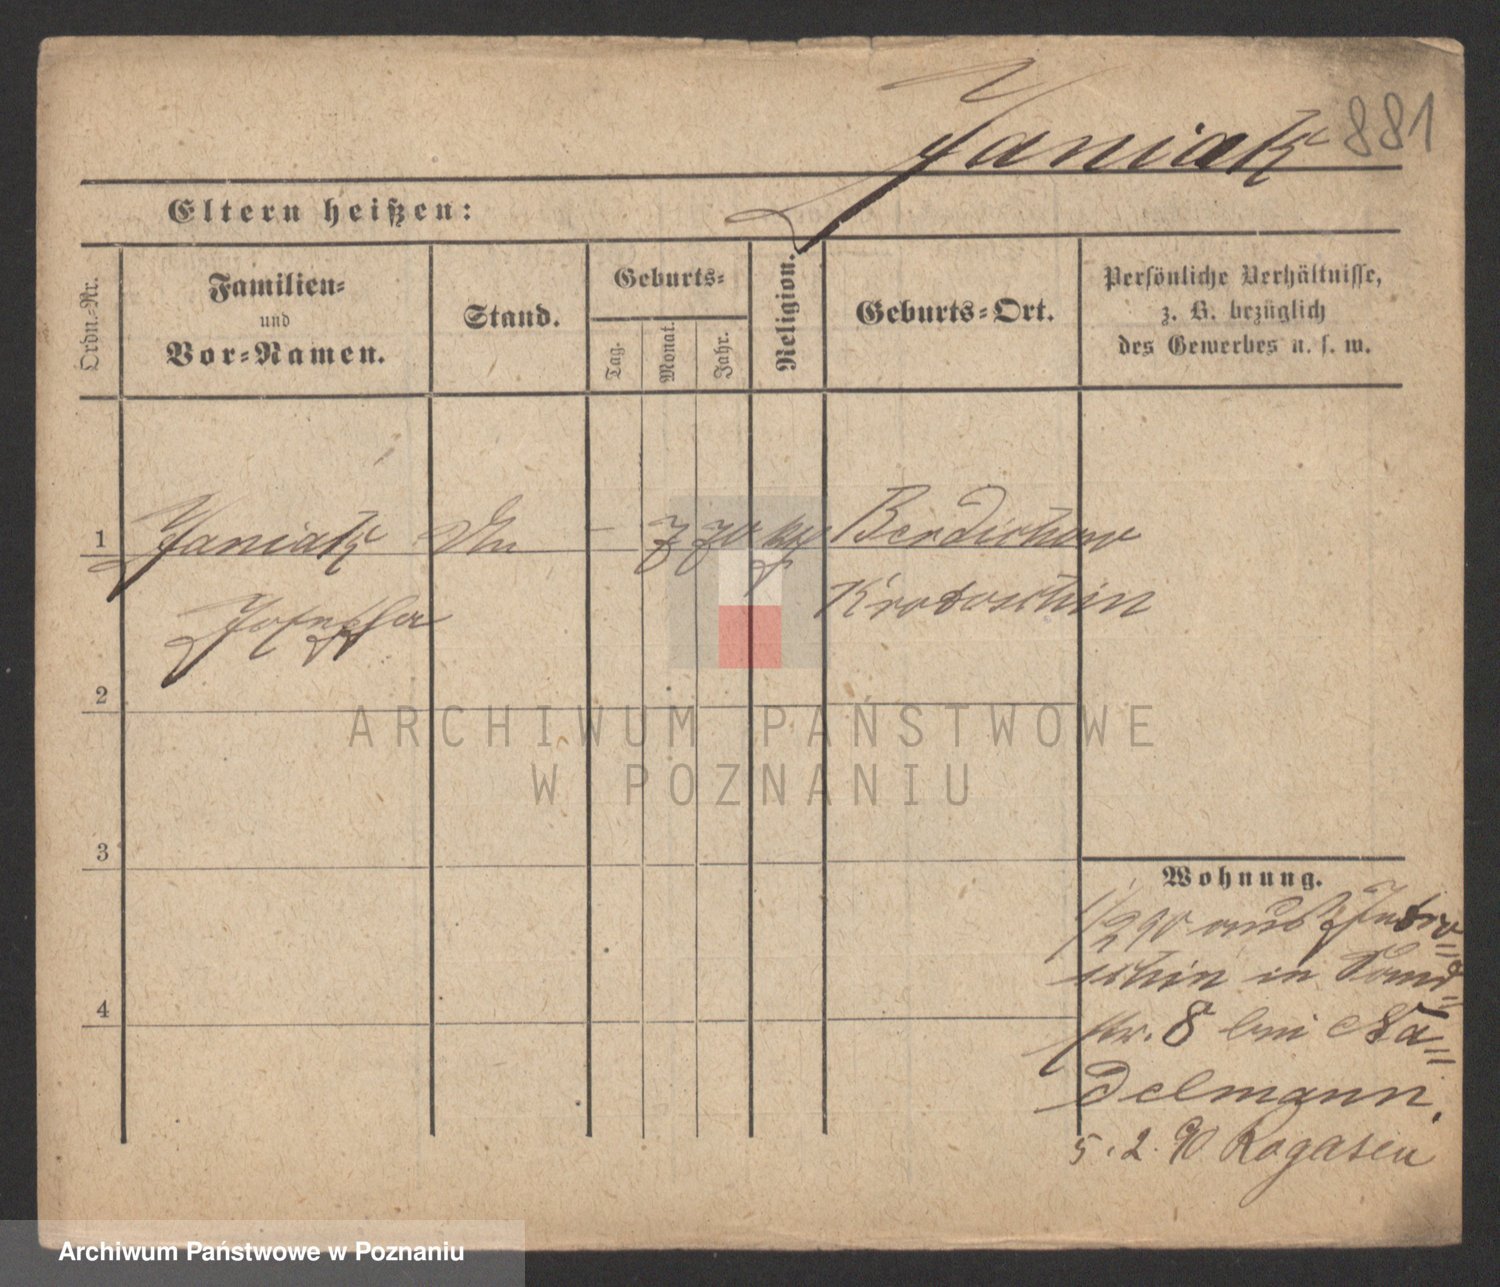 Janiak 881
Eltern heißen:
Ordn.-Nr.
Familien-
und
Vor-Namen.
Stand.
Geburts-
Tag.
Monat.
Jahr.
Religion.
Geburts-Ort.
Persönliche Verhältnisse,
z. B. bezüglich
des Gewerbes u. s. w.
1 Janiak – 7 70 Berdichow
Josepha Krotoschin
2
ARCHIWUM PAŃSTWOWE
W POZNANIU
3
Wohnung.
1/2 90 aus
schin in
str. 8 bei Na=
delmann.
4
5. 2. 90 Rogasen
Archiwum Państwowe w Poznaniu